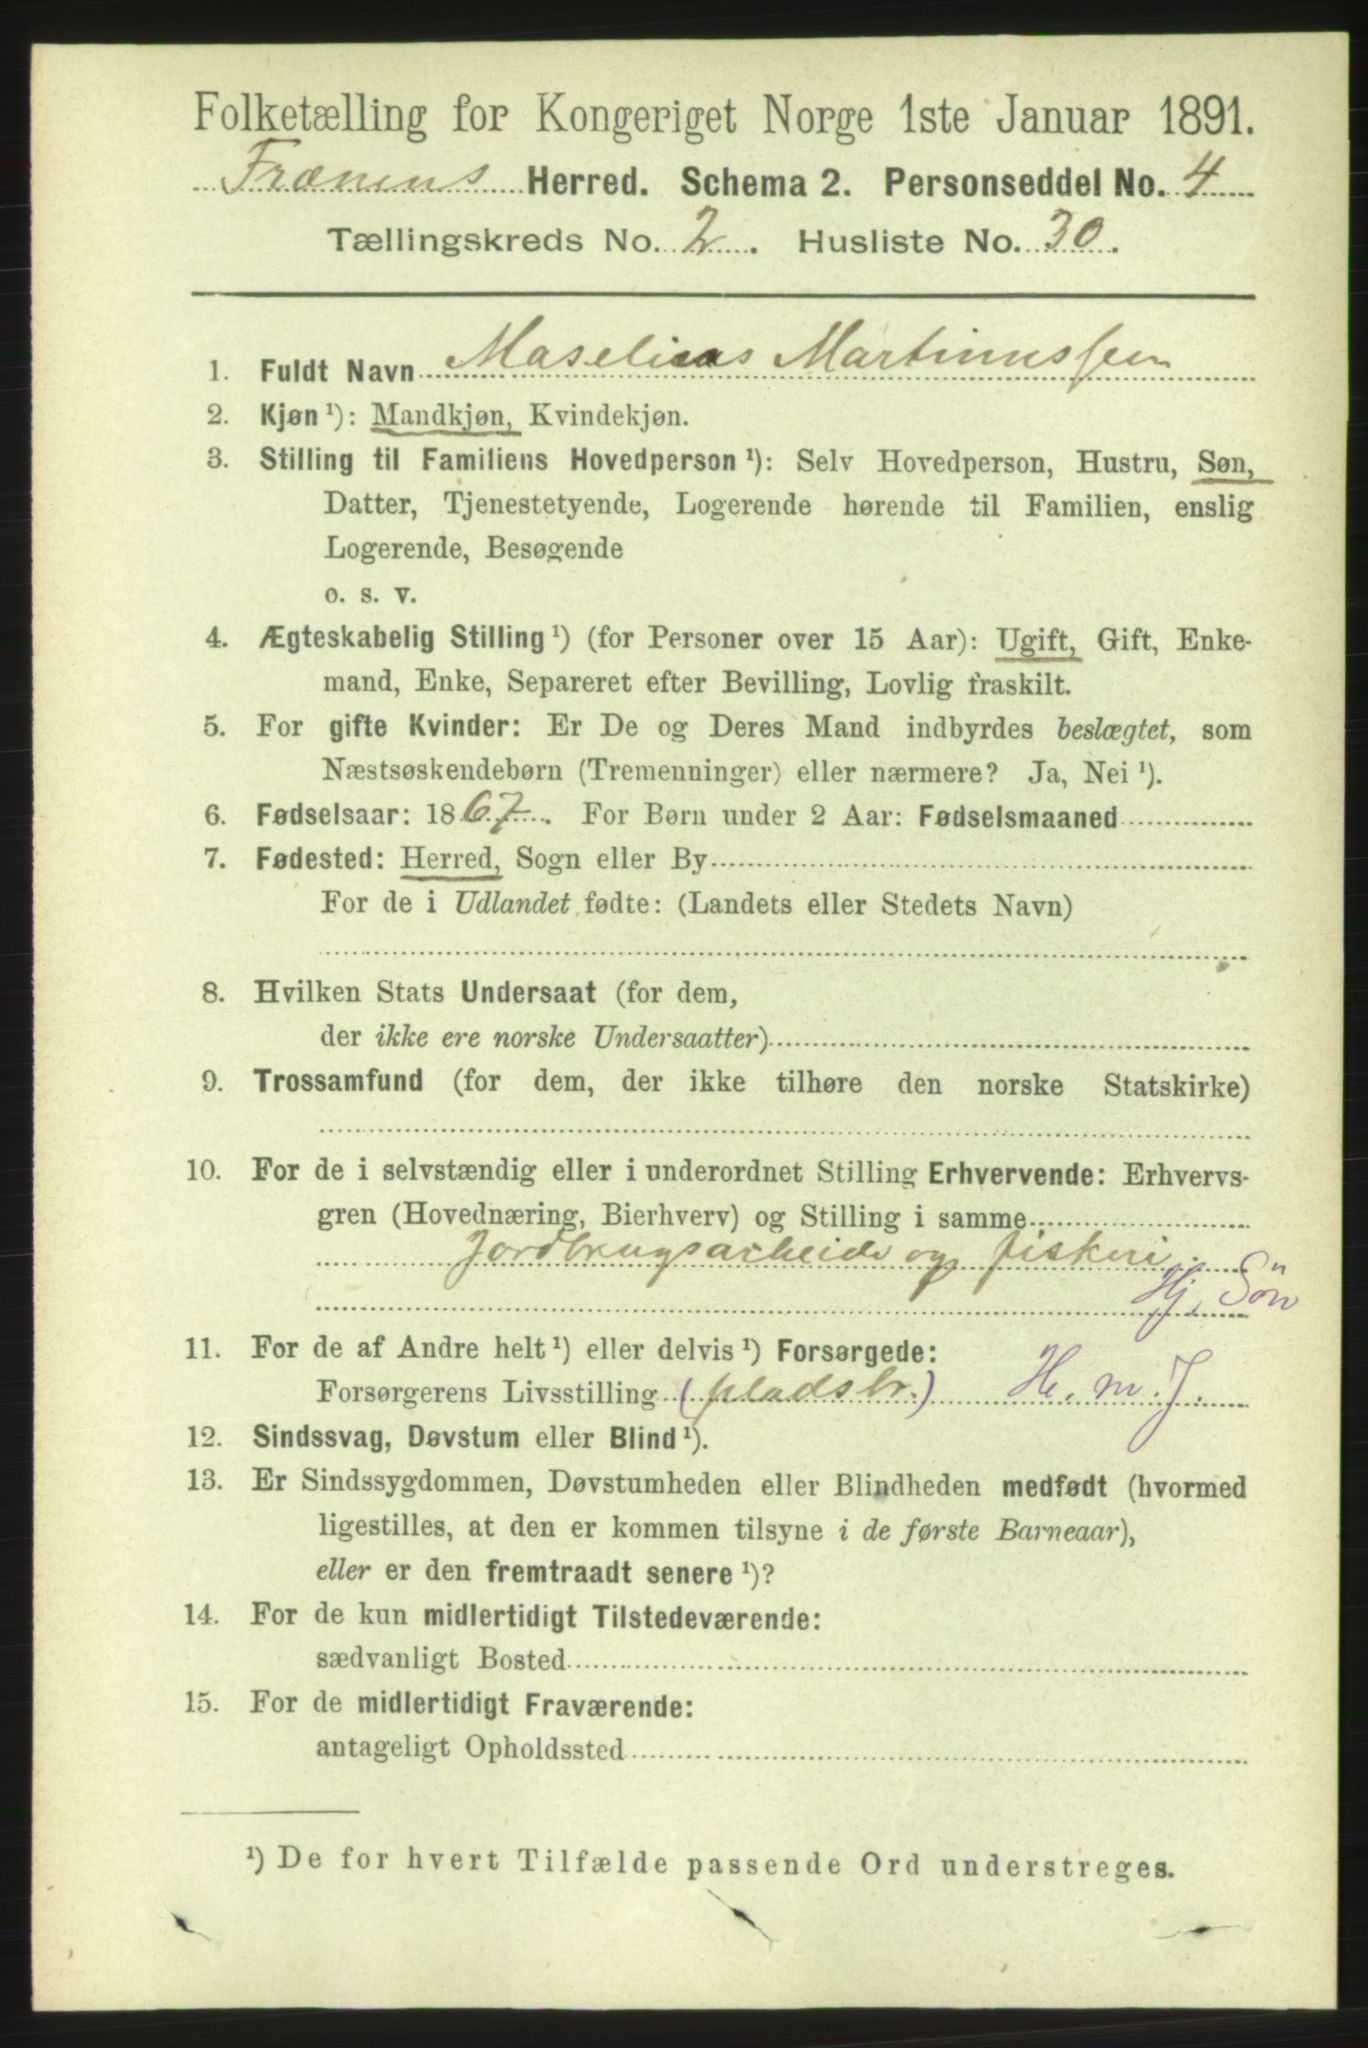 Folketælling for Kongeriget Norge 1ste Januar 1891.
Frænens Herred. Schema 2. Personseddel No. 4
Tællingskreds No. 2. Husliste No. 30.
1. Fuldt Navn Maselius Martinussen
2. Kjøn ¹): Mandkjøn, Kvindekjøn.
3. Stilling til Familiens Hovedperson ¹): Selv Hovedperson, Hustru, Søn,
Datter, Tjenestetyende, Logerende hørende til Familien, enslig
Logerende, Besøgende
o. s. v.
4. Ægteskabelig Stilling ¹) (for Personer over 15 Aar): Ugift, Gift, Enke-
mand, Enke, Separeret efter Bevilling, Lovlig fraskilt.
5. For gifte Kvinder: Er De og Deres Mand indbyrdes beslægtet, som
Næstsøskendebørn (Tremenninger) eller nærmere? Ja, Nei ¹).
6. Fødselsaar: 1867. For Børn under 2 Aar: Fødselsmaaned
7. Fødested: Herred, Sogn eller By
For de i Udlandet fødte: (Landets eller Stedets Navn)
8. Hvilken Stats Undersaat (for dem,
der ikke ere norske Undersaatter)
9. Trossamfund (for dem, der ikke tilhøre den norske Statskirke)
10. For de i selvstændig eller i underordnet Stilling Erhvervende: Erhvervs-
gren (Hovednæring, Bierhverv) og Stilling i samme
Jordbrugsarbeide og fiskeri.
Hj. Søn
11. For de af Andre helt ¹) eller delvis ¹) Forsørgede:
Forsørgerens Livsstilling (pladsbr.) H. m. J.
12. Sindssvag, Døvstum eller Blind ¹).
13. Er Sindssygdommen, Døvstumheden eller Blindheden medfødt (hvormed
ligestilles, at den er kommen tilsyne i de første Barneaar),
eller er den fremtraadt senere ¹)?
14. For de kun midlertidigt Tilstedeværende:
sædvanligt Bosted
15. For de midlertidigt Fraværende:
antageligt Opholdssted
¹) De for hvert Tilfælde passende Ord understreges.